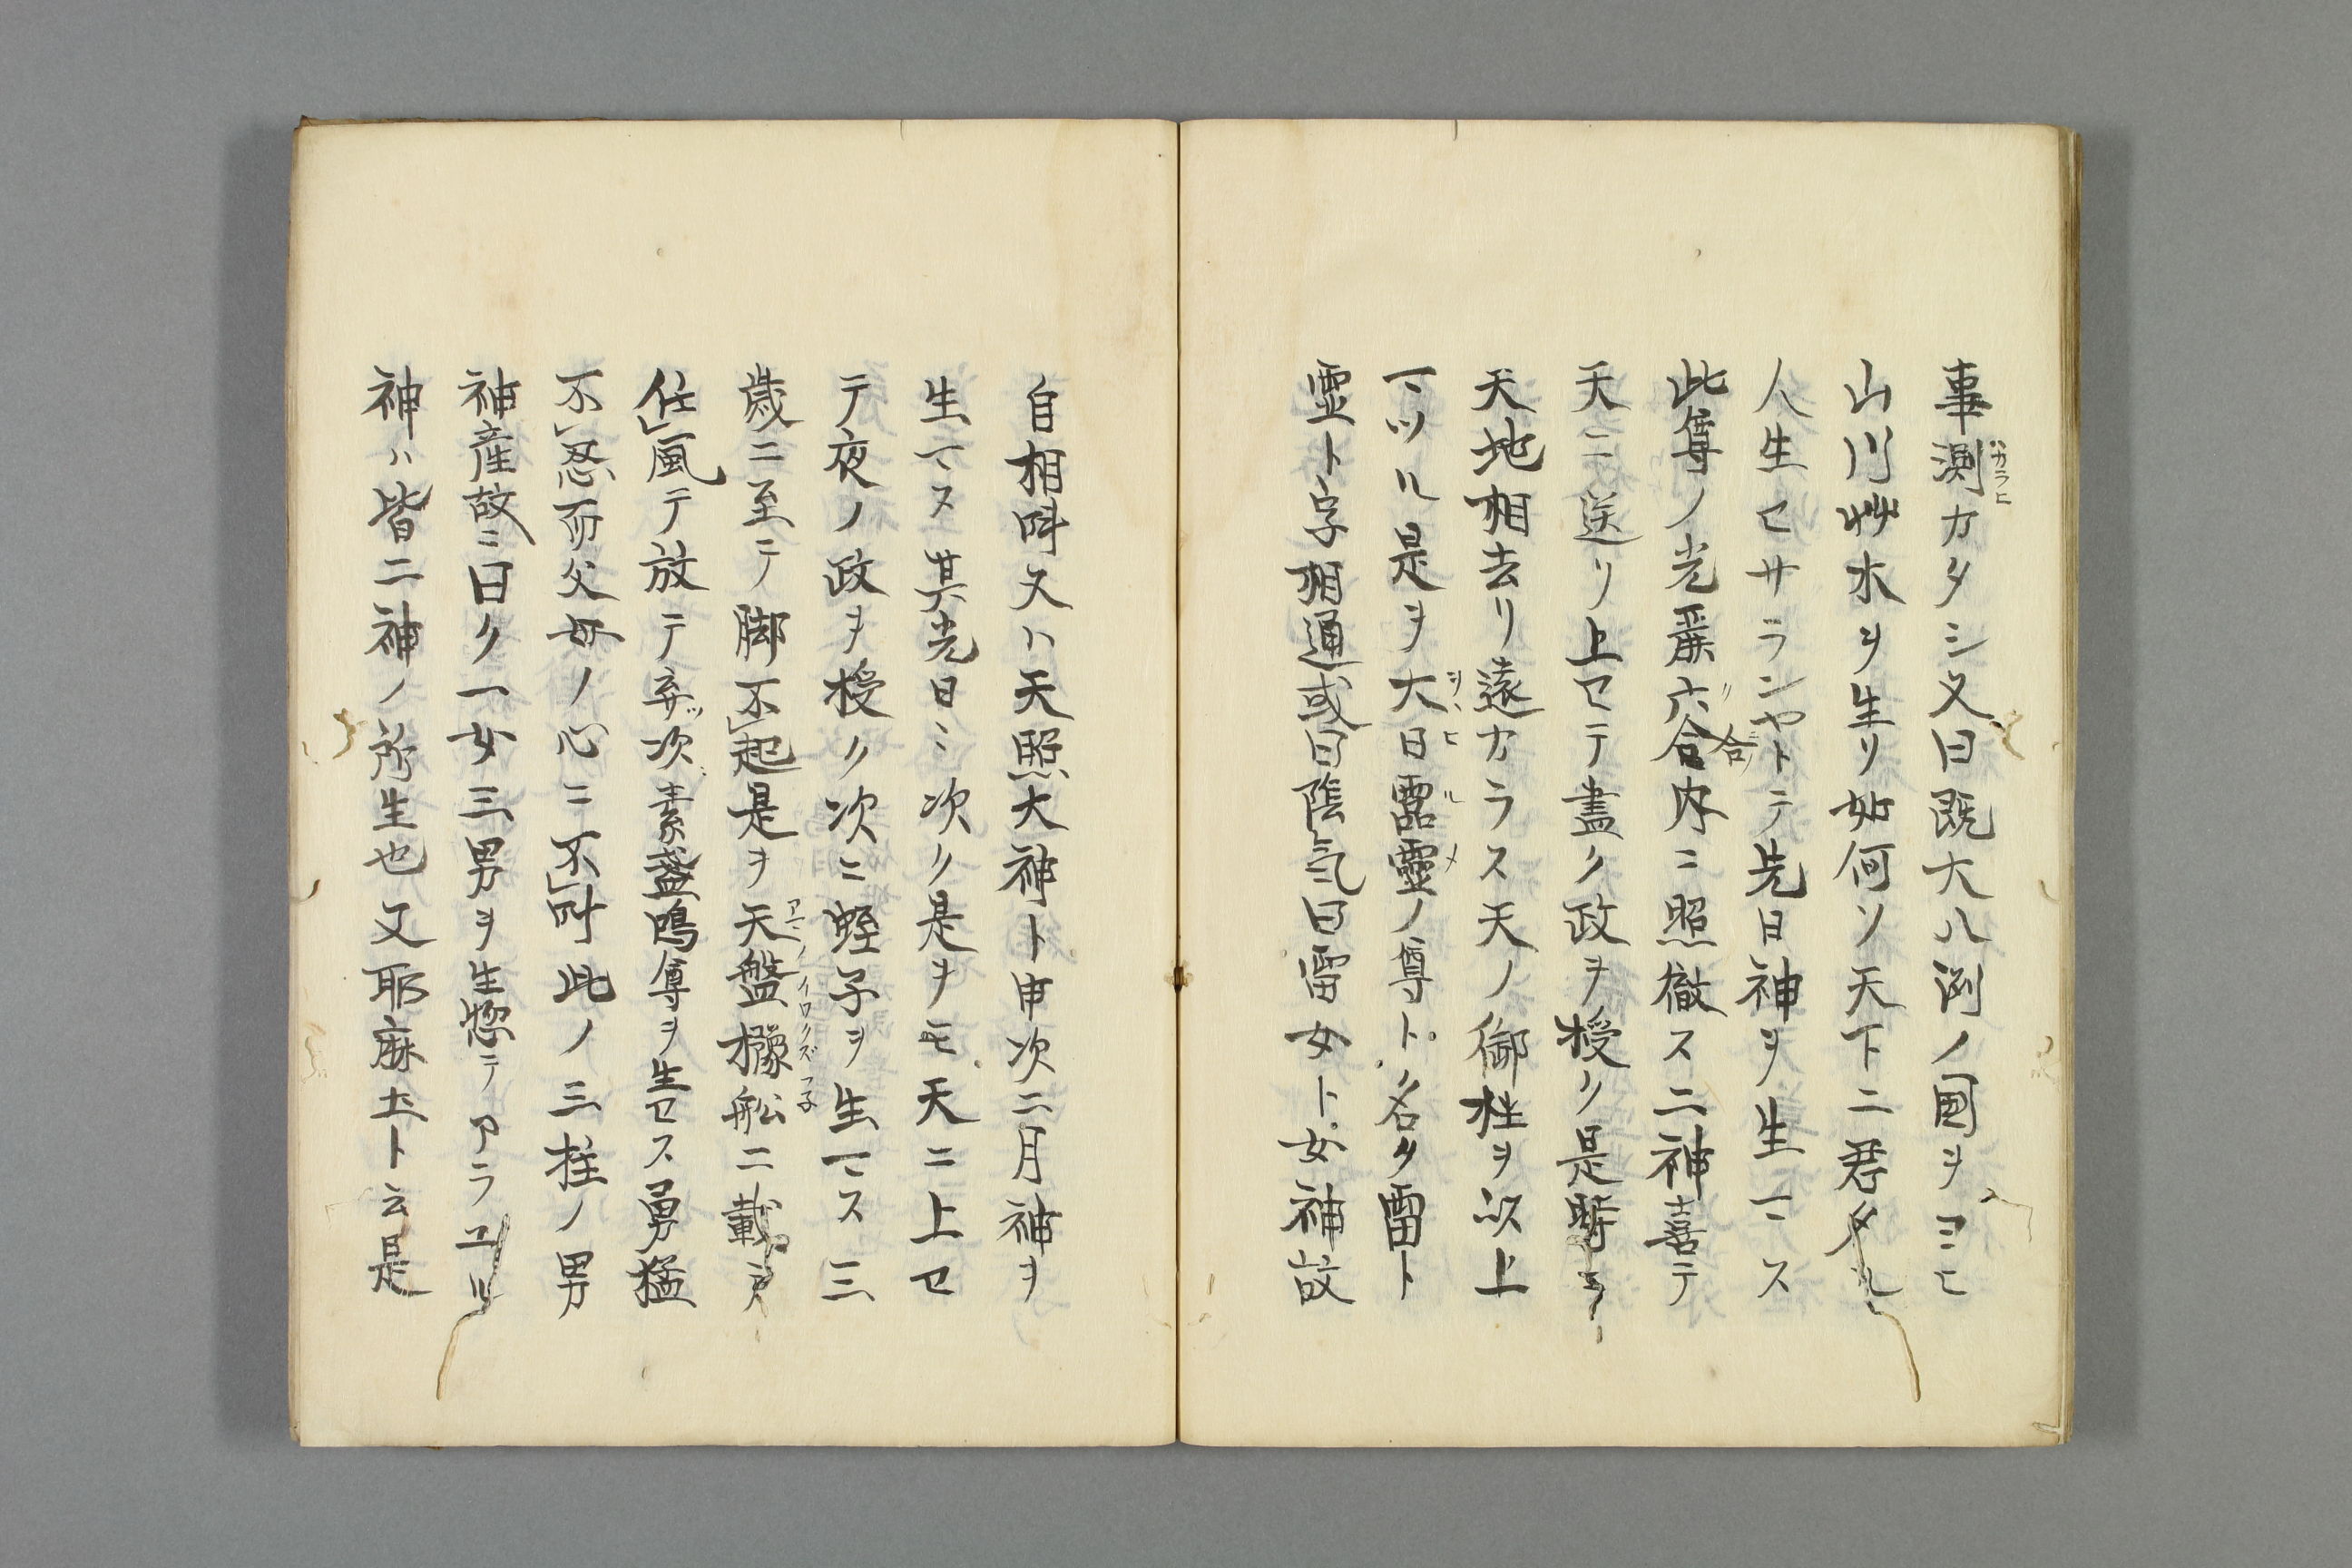 事測カタシ又曰既大八洲ノ國ヲヨヒ
山川艸木ヲ生リ如何ソ天下ニ君タル
人生セサランヤトテ先日神ヲ生マス
此尊ノ光麗六合内ニ照徹ス二神喜テ
天ニ送リ上セテ盡ク政ヲ授ク是時ヨリ
天地相去リ遠カラス天ノ御柱ヲ以上
マツル是ヲ大日孁靈ノ尊ト名タ雷ト
靈ト字相通或曰陰気曰雷女ト女神故
自相叶又ハ天照大神ト申次ニ月神ヲ
生マス其光日ニ次ク是ヲモ天ニ上セ
テ夜ノ政ヲ授ク次ニ蛭子ヲ生マス三
歳ニ至テ脚不起是ヲ天盤櫲船ニ載
任風テ放テ弃ツ次素盞鳴尊ヲ生セス勇猛
不忍而父母ノ心ニ不叶此ノ三柱ノ男
神産故ニ曰ク一女三男ヲ生惣テアラユル
神ハ皆二神ノ所生也又耶麻土ト云是